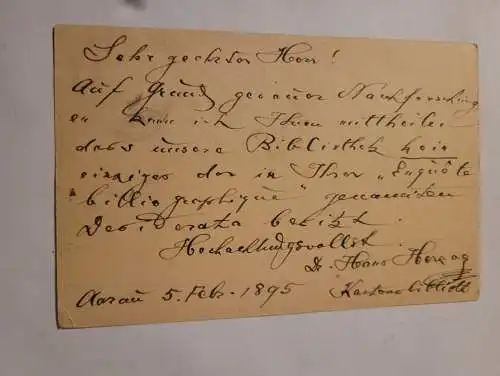 Sehr geehrter Herr!
Auf Grund genauer Nachforschung
en kann ich Ihnen mittheilen
dass unsere Bibliothek kein
einziges der in Ihrer „Enquête
bibliographique" genannten
Desiderata besitzt.
Hochachtungsvollst.
Dr. Hans Herzog
Aarau 5. Febr. 1895 Kantonsbiblioth